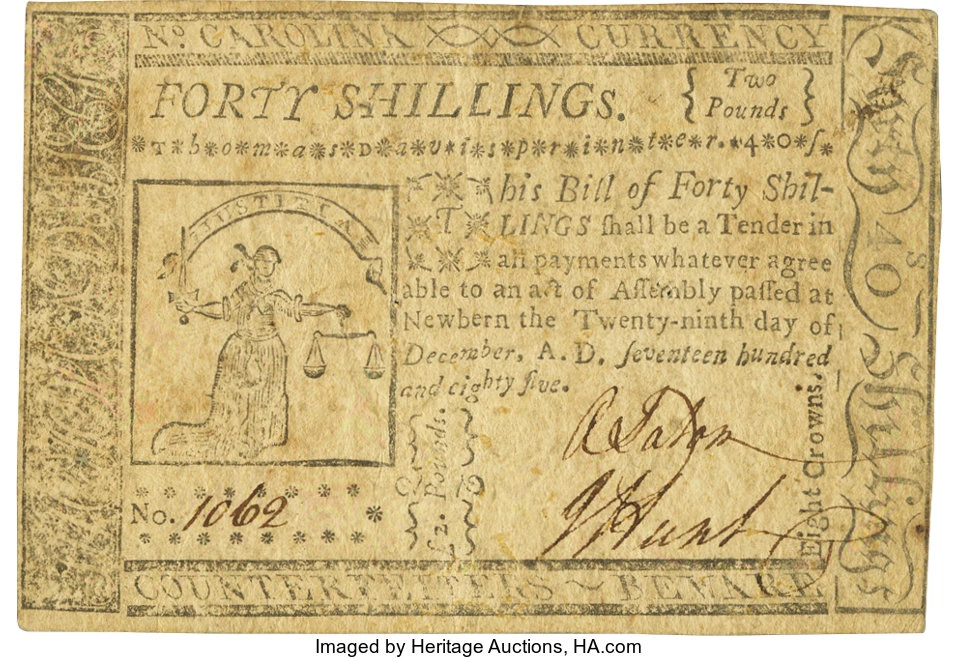 No. CAROLINA CURRENCY
FORTY SHILLINGS.
Two
Pounds
T*h*o*m*a*s*D*a*v*i*s*p*r*i*n*t*e*r.*4*0*ſ*
JUSTITIA
This Bill of Forty Shil-
LINGS ſhall be a Tender in
all payments whatever agree
able to an act of Aſſembly paſſed at
Newbern the Twenty-ninth day of
December, A. D. ſeventeen hundred
and eighty five.
No. 1062
£2. Pounds.
Eight Crowns.
Forty 40s Shillings
J Hunt
COUNTERFEITERS ~ BEWARE
Imaged by Heritage Auctions, HA.com